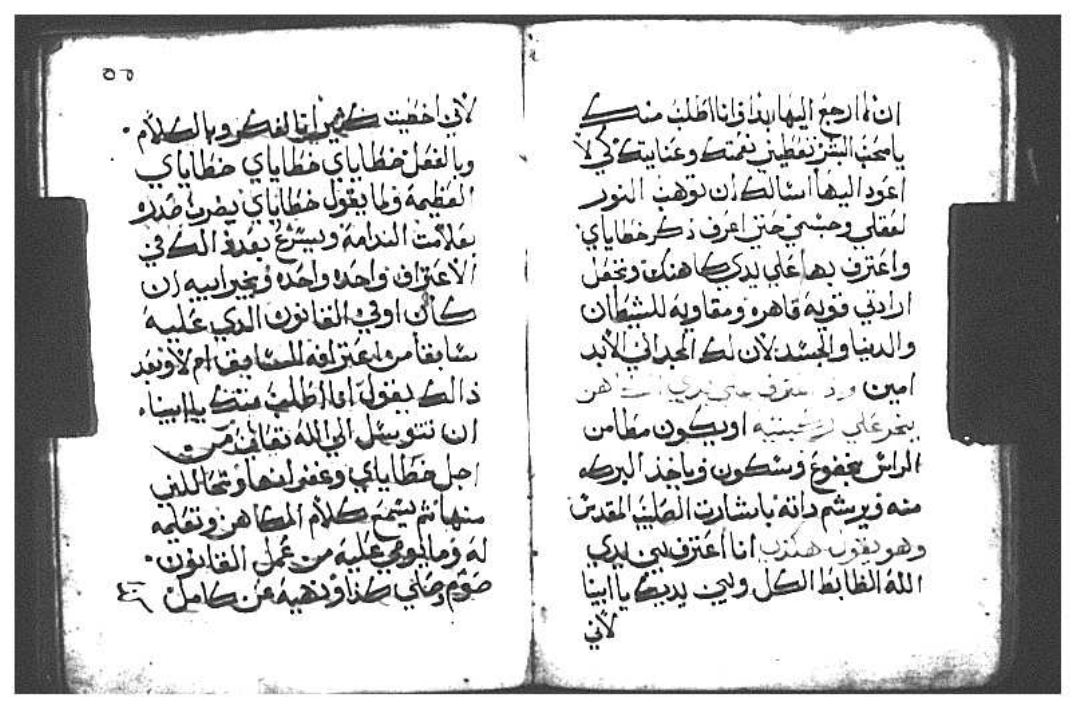 ان لا ارجع اليها ابدا وانا اطلب منك
يا محب البشر تعطيني نعمتك وعنايتك كي لا
اعود اليها اسالك ان توهب النور
لعقلي وحسي حتى اعرف ذكر خطاياي
واعترف بها علي يدي كاهنك وتجعل
ارادتي قوية قاهره ومقاويه للشطان
والدنيا والجسد لان لك المجد الي الابد
امين
علي ركبتيه او يكون مطامن
الراس بخضوع وسكون وياخذ البركه
منه ويرشم داته باشارت الصليب المقدس
وهو يقول هكذي انا اعترف بين يدي
الله الظابط الكل وبين يديك يا ابينا
لاني
لاني اخطيت كثيرا بالفكر وبالكلام
وبالفعل خطاياي خطاياي خطاياي
العظيمة ولما يقول خطاياي يضرب صدره
بعلامت الندامة ويسرع بعد ذالك في
الاعتراف واحده واحده ويخبر ابيه ان
كان اوفي القانون الدي عليه
سابقا من اعترافه السابق ام لا وبعد
ذالك يقول انا اطلب منك يا ابينا
ان تتوسل الي الله تعالي من
اجل خطاياي وغفرانها وتحاللني
منها ثم يسمع كلام الكاهن وتعليمه
له وما يوضع عليه من عمل القانون
صوم وصلي كذا ونهيه عن كامل